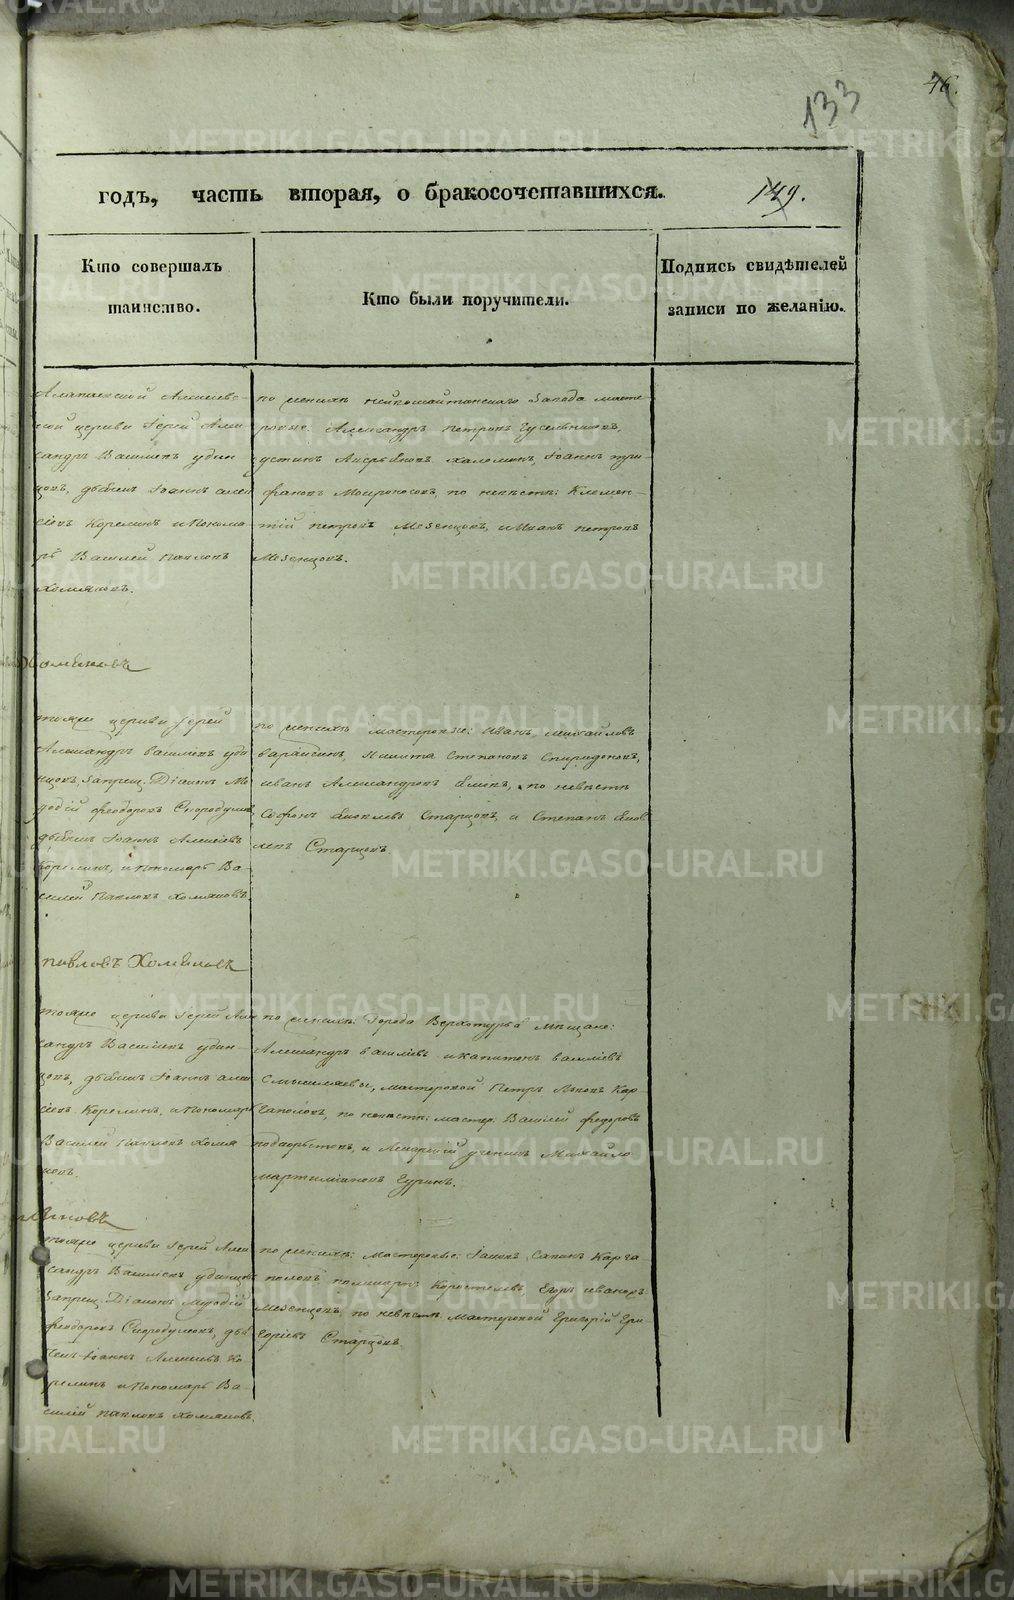 76.
133
годъ, часть вторая, о бракосочетавшихся.
149.
Кто совершалъ
таинство.
Кто были поручители.
Подпись свидѣтелей
записи по желанію.
Алапаевской Алексѣев-
ской церкви Іерей Алек
сандръ Васильевъ удин
цовъ, дьячекъ Іоаннъ алек
сіевъ Корелинъ и Понома
рь Василей Павловъ
Хомяковъ.
по женихѣ нейвошайтанскаго Завода масте-
ровые: Александръ петровъ Гусельниковъ,
устинъ Халеминъ, Іоаннъ три-
фановъ Мокроносовъ, по невѣстѣ: Клемен-
тій петровъ Мезенцовъ, и Иванъ петровъ
Мезенцовъ.
тояже церкви Іерей
Александръ васильевъ уди
нцовъ, Запрещ. Діаконъ Ме
фодій феодоровъ Скородумовъ
дьячекъ Іоаннъ Алексѣевъ
Корелинъ, и пономарь Ва-
силей Павловъ Хомяковъ.
по женихѣ мастеровые: Иванъ михайловъ
Никита Степановъ Спиридоновъ,
иванъ Александровъ по невѣстѣ
Софонъ Яковлевъ Старцовъ, и Степанъ Яков
левъ Старцовъ.
павловъ Хомяковъ
тояже церкви Іерей Алек
сандръ Васильевъ удин-
цовъ, дьячекъ Іоаннъ алек
сіевъ Корелинъ, и Пономарь
Василей Павловъ Хомя
ковъ.
по женихѣ: Города Верхотурья мѣщане:
Александръ васильевъ и капитонъ васильевъ
мастеровой Петръ Яковъ Кар
гаполовъ, по невѣстѣ: мастер. Василей федоровъ
и Лекарскій ученикъ Михайло
Гуринъ.
тояже церкви Іерей Алек
сандръ Васильевъ удинцовъ
Запрещ. Діаконъ Мефодій
феодоровъ Скородумовъ, дья
чекъ Іоаннъ Алексѣевъ Ко
релинъ и Пономарь Ва-
силій павловъ Хомяковъ.
по женихѣ: Мастеровые: Іаковъ Савинъ Карга
половъ, Коростелевъ, Егоръ ивановъ
Мезенцовъ, по невѣстѣ мастеровой Григорій Гри
горіевъ Старцовъ.
METRIKI.GASO-URAL.RU